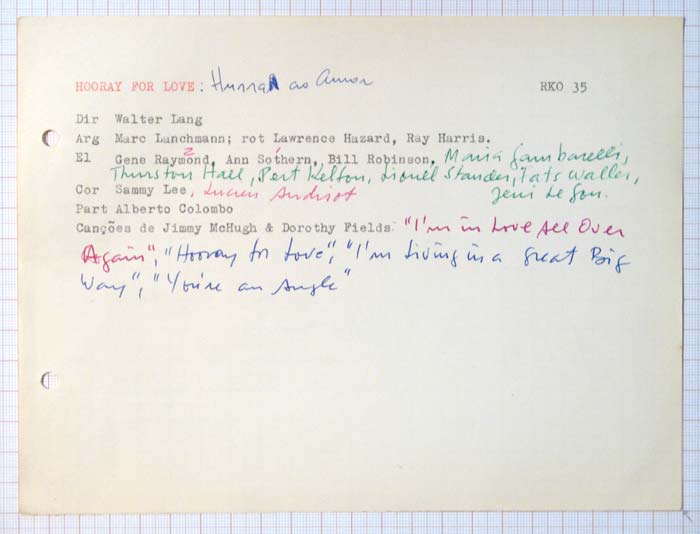 HOORAY FOR LOVE: Hurrah ao Amor RKO 35
Dir Walter Lang
Arg Marc Lanchmann; rot Lawrence Hazard, Ray Harris.
El Gene Raymond, Ann Sothern, Bill Robinson, Maria Gambarelli,
Thurston Hall, Pert Kelton, Lionel Stander, Fats Waller,
Jeni Le Gon.
Cor Sammy Lee, Lucien Andriot
Part Alberto Colombo
Canções de Jimmy McHugh & Dorothy Fields: "I'm in Love All Over
Again", "Hooray for Love", "I'm Living in a Great Big
Way", "You're an Angle"